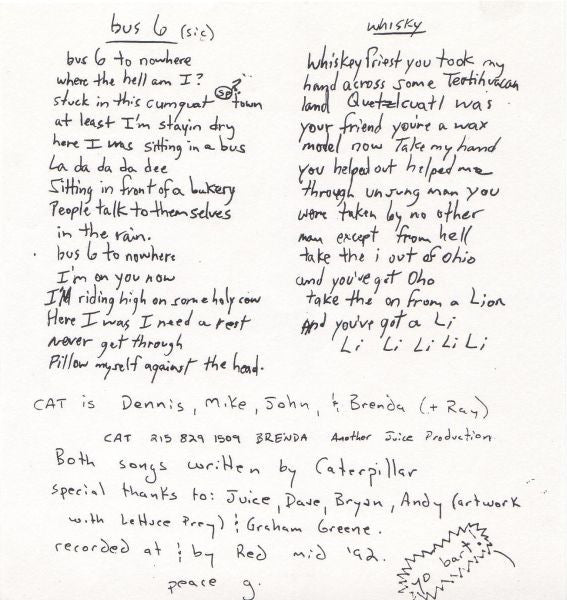 bus 6 (sic)
bus 6 to nowhere
where the hell am I?
stuck in this cumquat (sp?) town
at least I'm stayin dry
here I was sitting in a bus
La da da da dee
Sitting in front of a bakery
People talk to themselves
in the rain.
bus 6 to nowhere
I'm on you now
I'M riding high on some holy cow
Here I was I need a rest
never get through
Pillow myself against the head.
whisky
Whiskey Priest you took my
hand across some Teotihuacan
land Quetzelcuatl was
your friend you're a wax
model now Take my hand
you helped out helped me
through unsung man you
were taken by no other
man except from hell
take the i out of Ohio
and you've got Oho
take the on from a Lion
And you've got a Li
Li Li Li Li Li
CAT is Dennis, Mike, John, & Brenda (+ Ray)
CAT 215 829 1509 BRENDA Another Juice Production
Both songs written by Caterpillar
special thanks to: Juice, Dave, Bryan, Andy (artwork
with Lettuce Prey) & Graham Greene.
recorded at & by Red mid '92.
peace g.
yo bart!